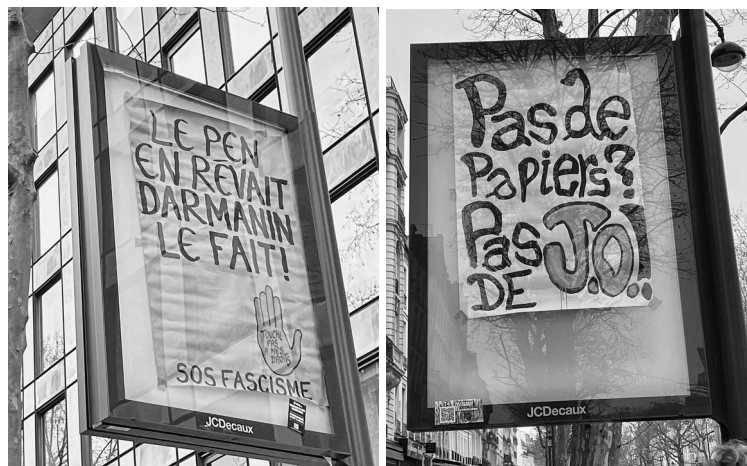 LE PEN
EN RÊVAIT
DARMANIN
LE FAIT!
TOUCHE
PAS
À MES
DROITS
SOS FASCISME
JCDecaux
Pas de
Papiers?
Pas
DE
J.O!
JCDecaux